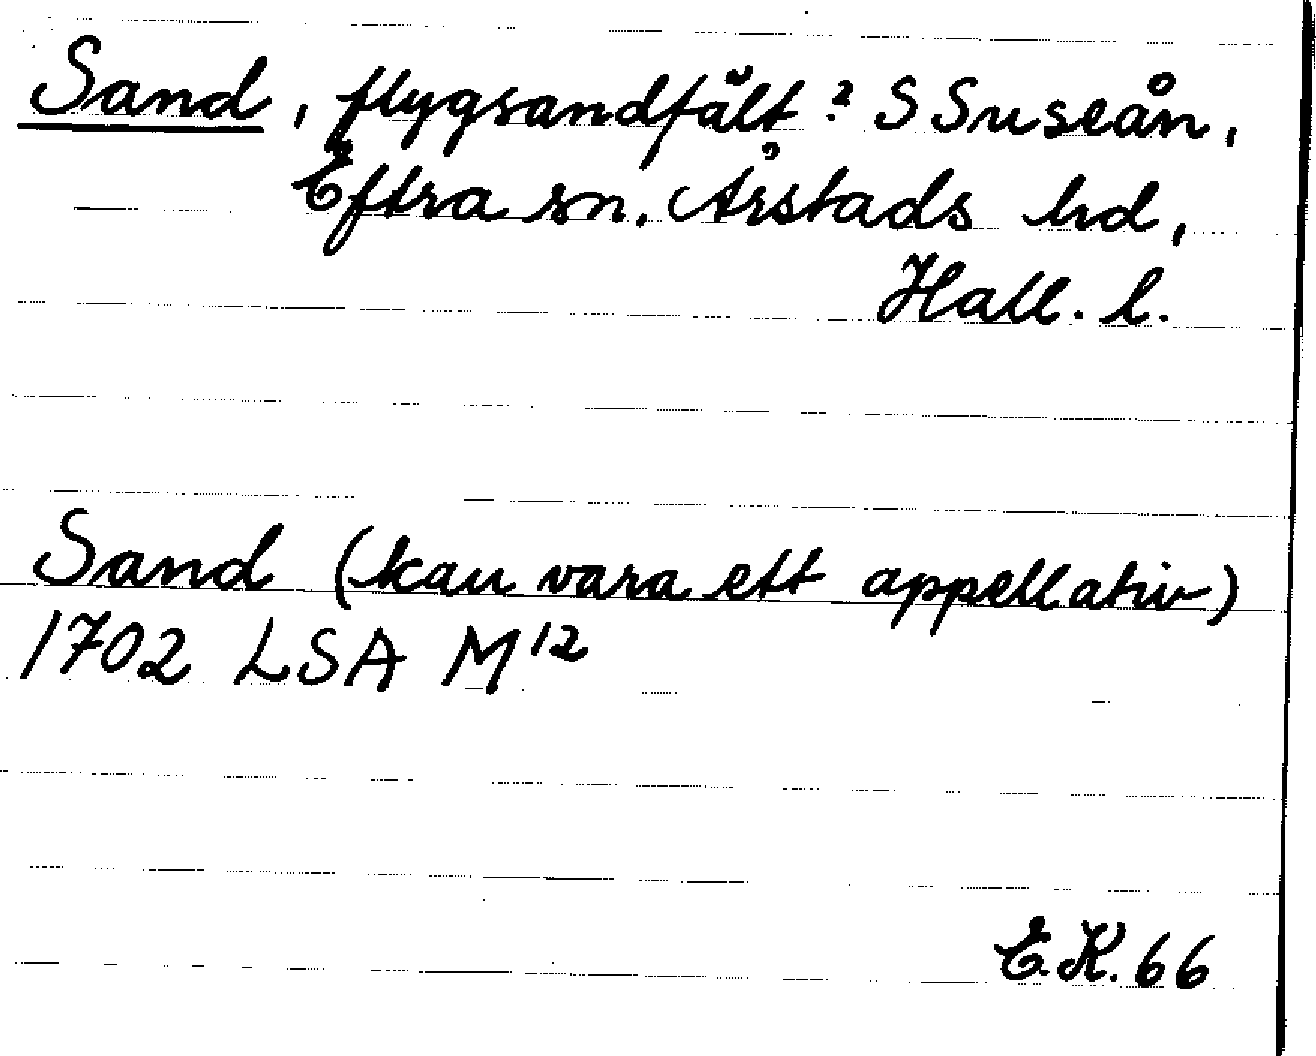 Sand, flygsandfält? S Suseån,
Eftra sn. Årstads hd,
Hall. l.
Sand (kan vara ett appellativ)
1702 LSA M12
E.K. 66